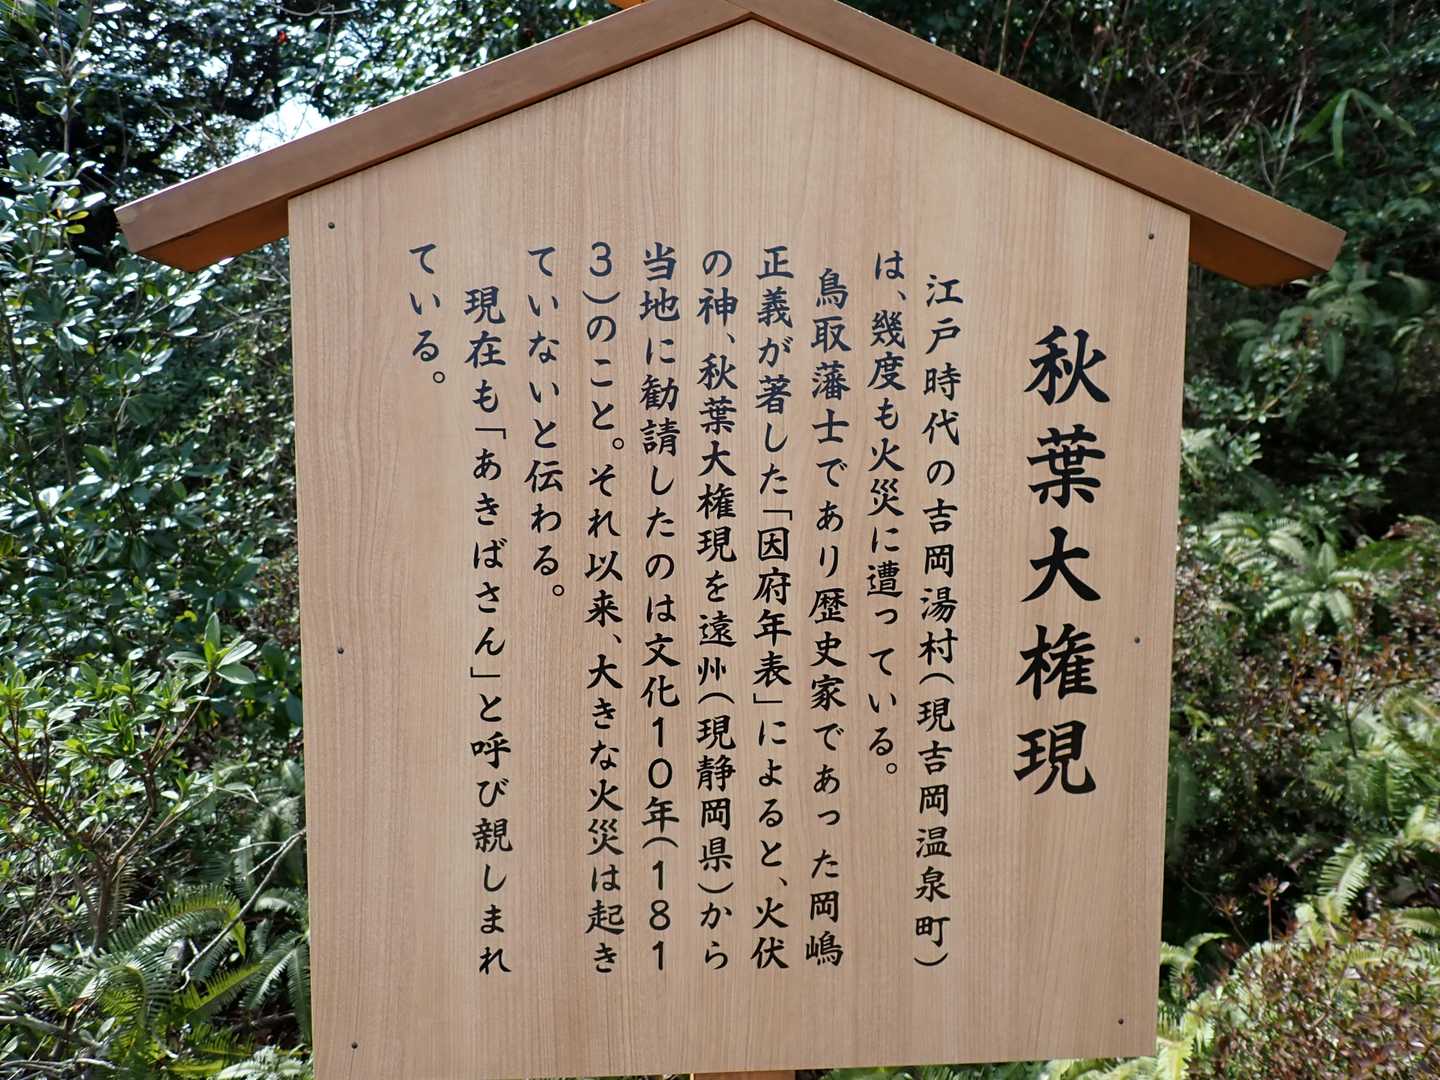 秋葉大権現
江戸時代の吉岡湯村(現吉岡温泉町)
は、幾度も火災に遭っている。
鳥取藩士であり歴史家であった岡嶋
正義が著した「因府年表」によると、火伏
の神、秋葉大権現を遠州(現静岡県)から
当地に勧請したのは文化10年(181
3)のこと。それ以来、大きな火災は起き
ていないと伝わる。
現在も「あきばさん」と呼び親しまれ
ている。